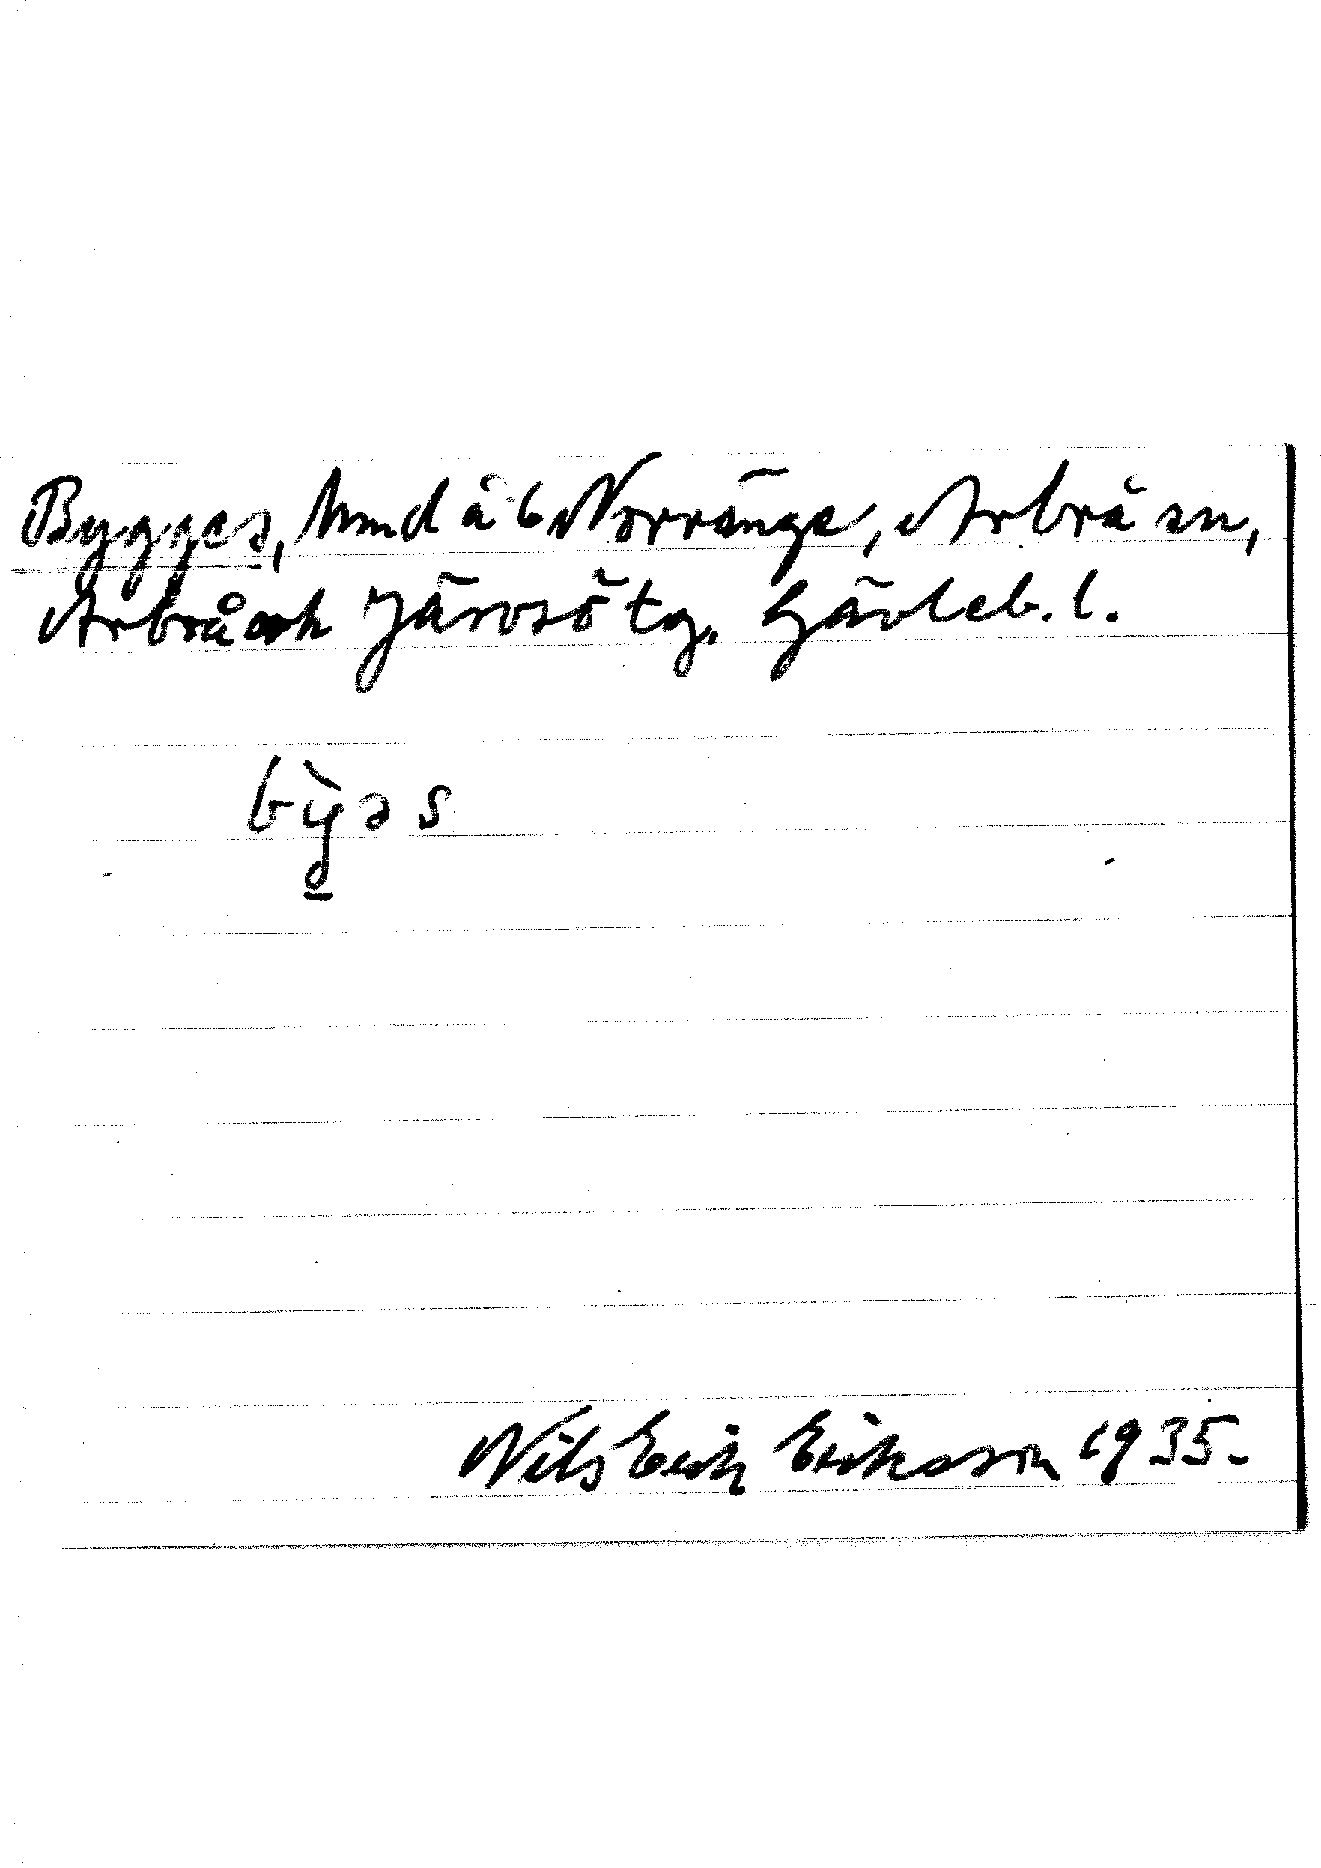 Bygges, hmd å 6 Norränge, Arbrå sn,
Arbrå och Järvsö tg. Gävleb. l.
bỳəs
Nils Erik Eriksson 1935.